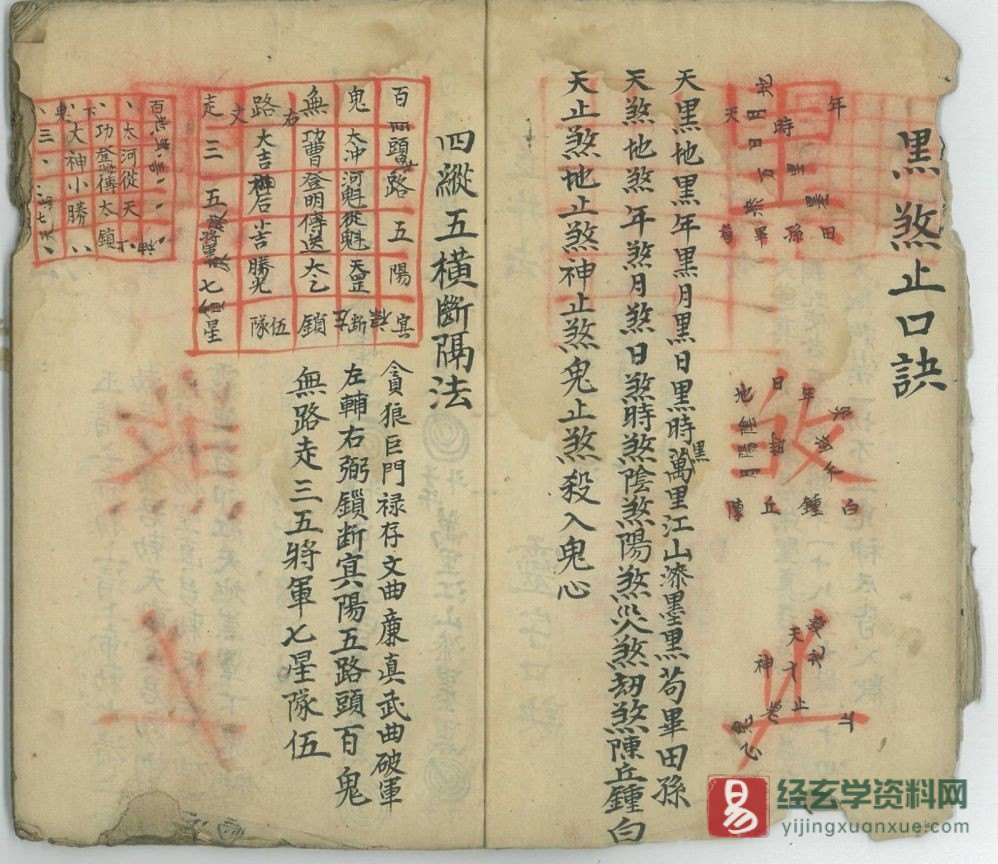 黑煞止口訣
年
時
月
日
地
天
墨
里
万
黑
田
孫
畢
苟
年
日
地
陰
陽
月
白
鍾
丘
陳
天
止
神
鬼
心
止
天黑地黑年黑月黑日黑時黑萬里江山漆墨黑苟畢田孫
天煞地煞年煞月煞日煞時煞陰煞陽煞災煞劫煞陳丘鍾白
天止煞地止煞神止煞鬼止煞殺入鬼心
四縱五橫斷隔法
百頭路五陽
鬼太冲河魁從魁天罡斷
無功曹登明傳送太乙鎖
路大吉神后小吉勝光隊伍
走三五將軍七星
太河從天
功登傳太鎖
大神小勝
三
七
貪狼巨門禄存文曲廉真武曲破軍
左輔右弼鎖断寅陽五路頭百鬼
無路走三五將軍七星隊伍
易
经玄学资料网
yijingxuanxue.com